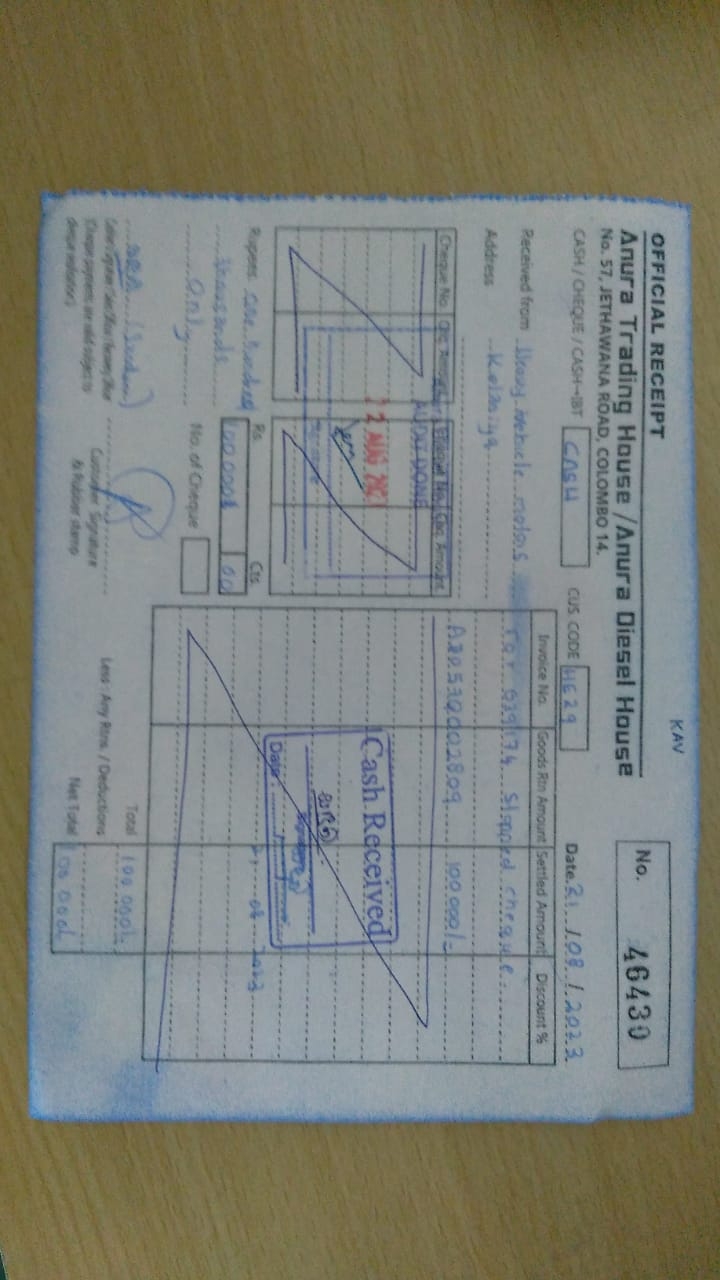 KAV
OFFICIAL RECEIPT
Anura Trading House / Anura Diesel House
No. 57, JETHAWANA ROAD, COLOMBO 14.
No. 46430
CASH / CHEQUE / CASH-IBT CASH
CUS. CODE HE29
Date. 21 / 08 / 2023
Received from Heavy vehicle motors
Address Kelaniya
Cheque No. Chq. Amount Cheque No. Chq. Amount
AUDIT DONE
22 AUG 202
Rupees one hundred
thousands
only
Rs. Cts.
100 000/ 00
No. of Cheque
Customer Signature
& Rubber stamp
(Cheque payments are valid subject to
cheque realisation)
Invoice No. Goods Rtn Amount Settled Amount Discount %
639174 stopped cheque
A20530002809 100 000/-
Cash Received
Date:
21 08 2023
Total 100 000/-
Less : Any Rtns. / Deductions
Net Total 100 000/